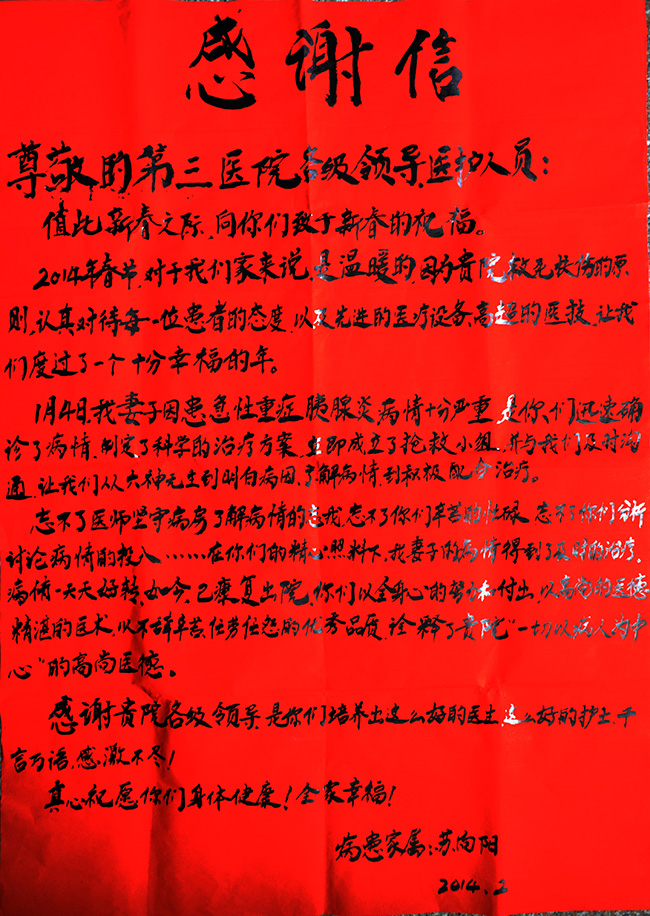 感谢信
尊敬的第三医院各级领导、医护人员：
值此新春之际，向你们致于新春的祝福。
2014年春节，对于我们家来说，是温暖的，因为贵院救死扶伤的原
则，认真对待每一位患者的态度，以及先进的医疗设备，高超的医技，让我
们度过了一个十分幸福的年。
1月4日，我妻子因患急性重症胰腺炎，病情十分严重，是你们迅速确
诊了病情，制定了科学的治疗方案，立即成立了抢救小组，并与我们及时沟
通，让我们从六神无主到明白病因，了解病情，到积极配合治疗。
忘不了医师坚守病房了解病情的忘我，忘不了你们辛苦的忙碌，忘不了你们分析
讨论病情的投入……在你们的精心照料下，我妻子的病情得到了及时的治疗，
病情一天天好转，如今，已痊复出院，你们以全身心的努力和付出，以高尚的医德
精湛的医术，以不辞辛苦，任劳任怨的优秀品质，诠释了贵院“一切以病人为中
心”的高尚医德。
感谢贵院各级领导，是你们培养出这么好的医生，这么好的护士，千
言万语，感激不尽！
真心祝愿你们身体健康！全家幸福！
病患家属：苏向阳
2014.2